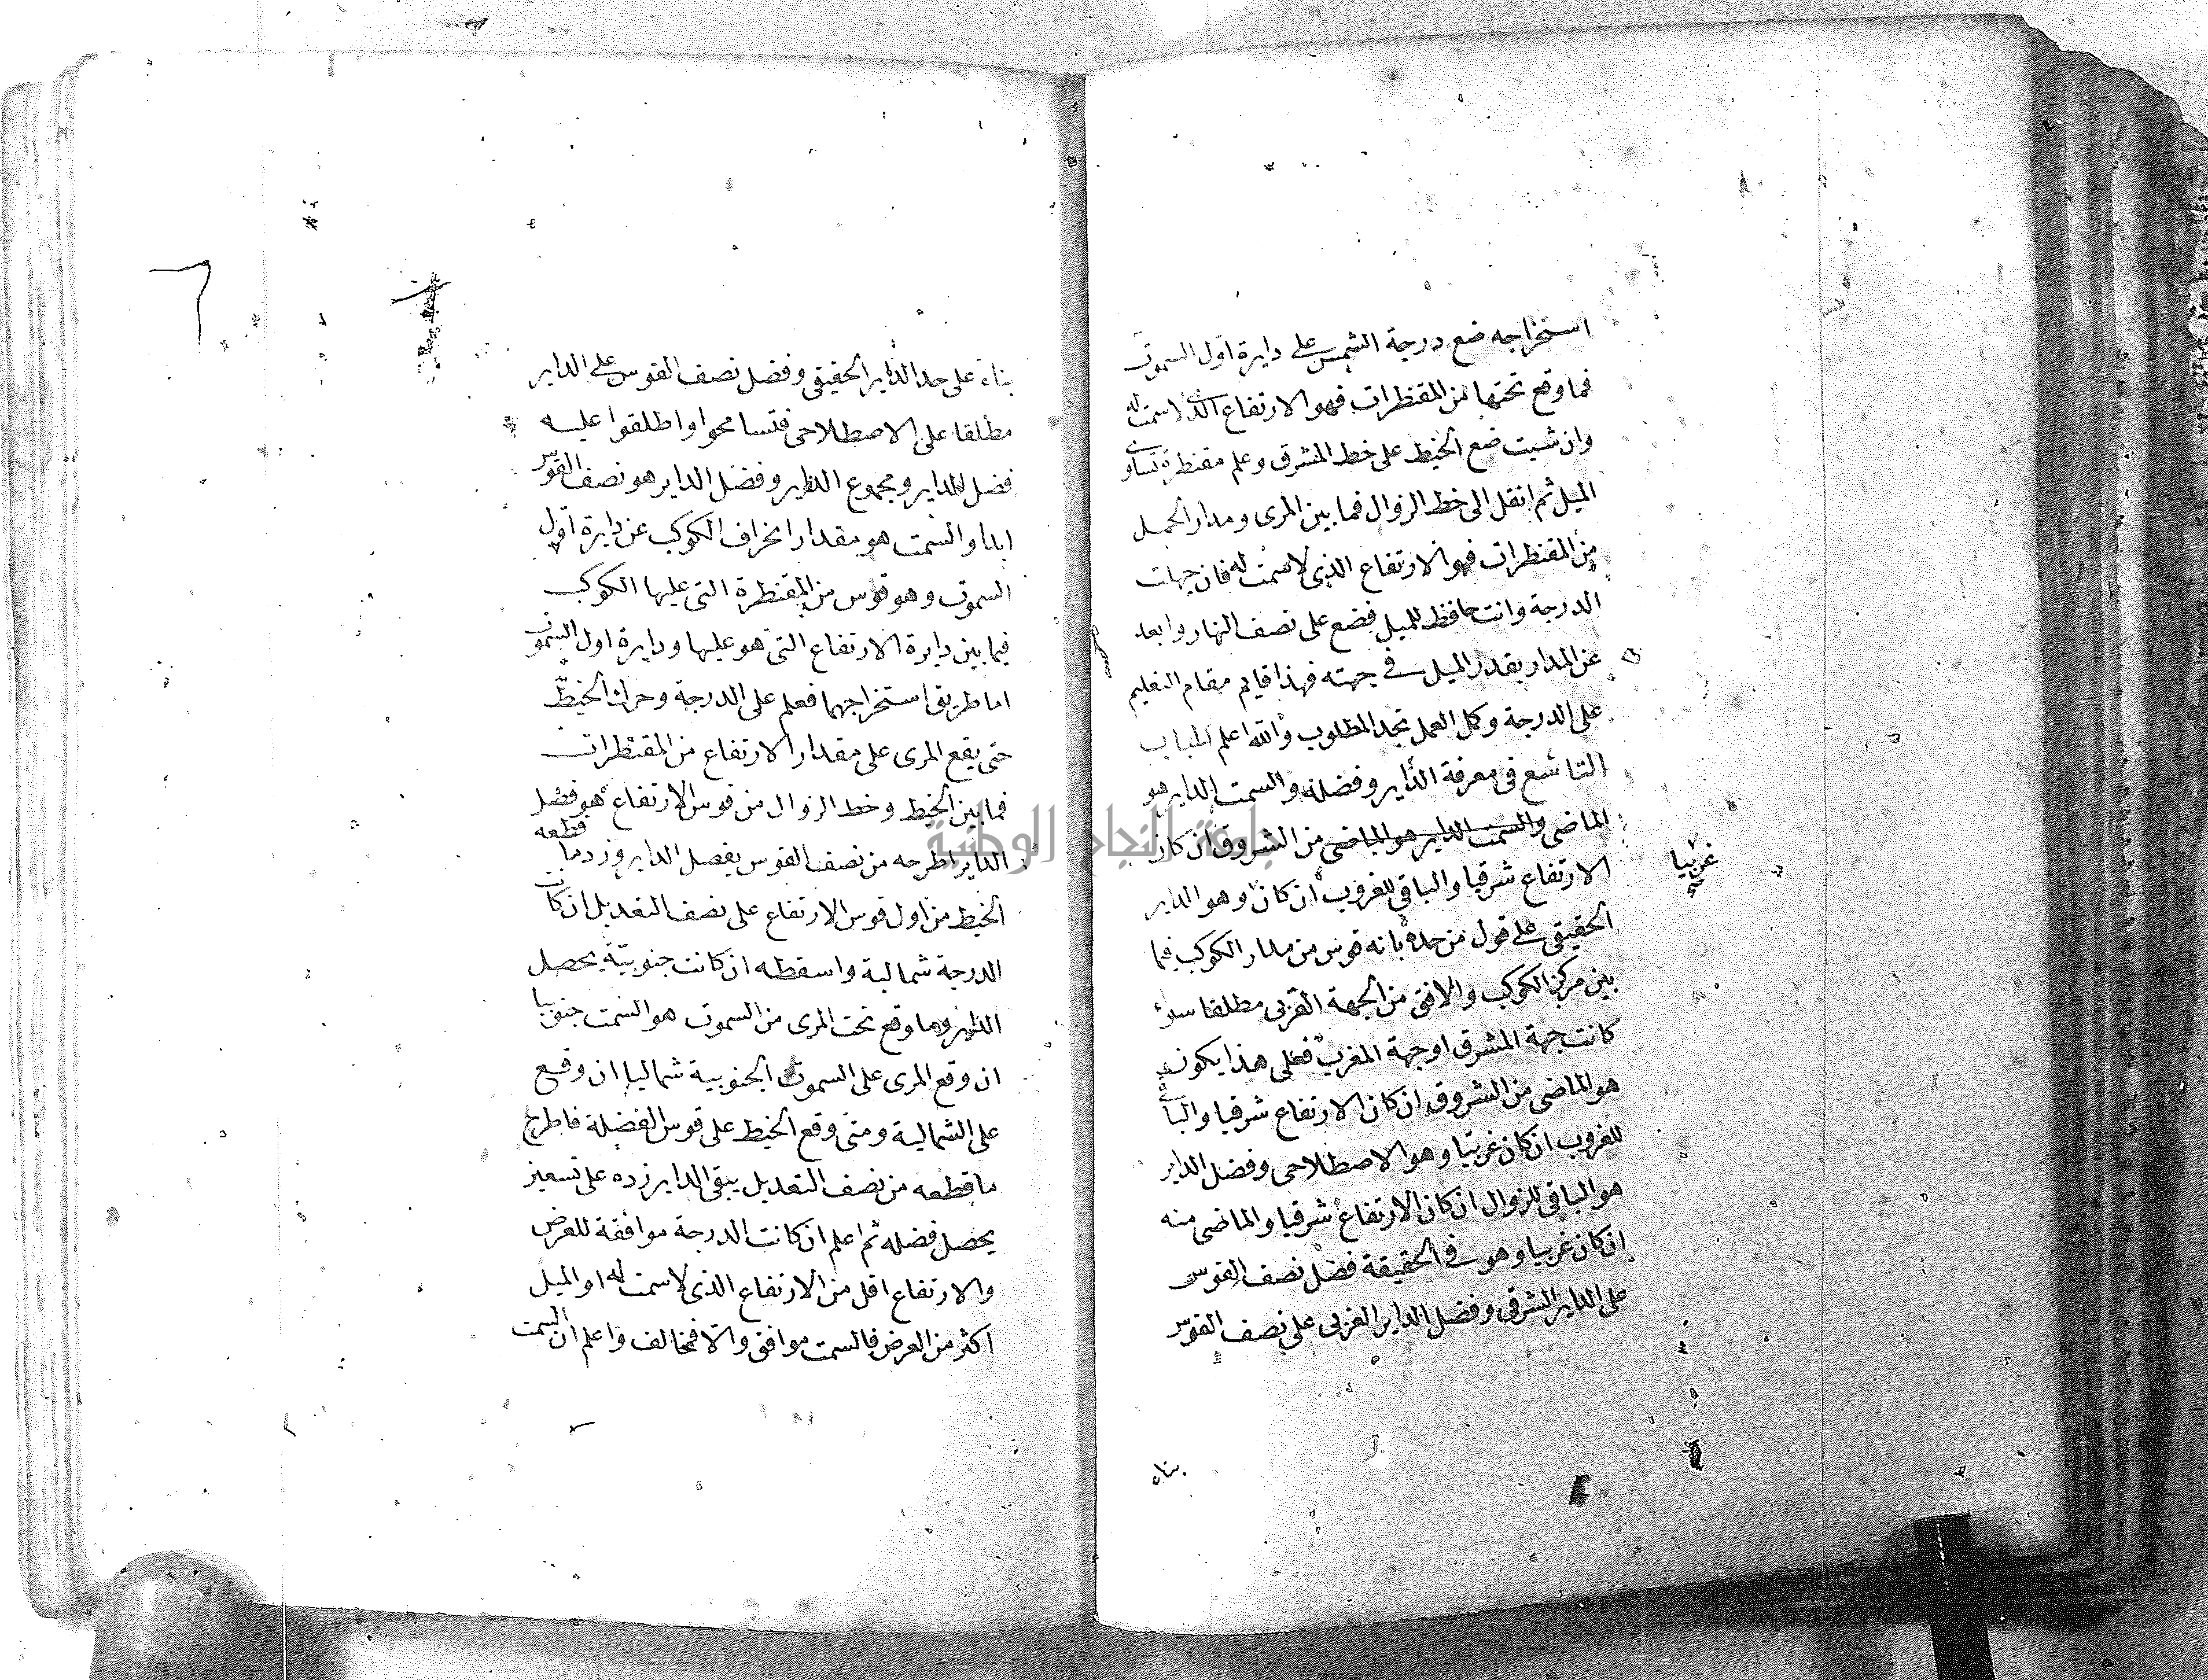 استخراجه ضع درجة الشمس على دايرة اول السموت
فما وقع تحتها من المقنظرات فهو الارتفاع الذى لاسمت له
وان شيت ضع الخيط على خط المشرق وعلم مقنطرة تساوى
الميل ثم انقل الى خط الزوال فما بين المرى ومدار الحمل
من المقنظرات فهو الارتفاع الذى لاسمت له فان جهات
الدرجة وانت حافظ للميل فضع على نصف النهار وابعد
عن المدار بقدر الميل فى جهته فهذا قايم مقام التعليم
على الدرجة وكمل العمل تجد المطلوب والله اعلم الباب
التاسع فى معرفة الداير وفضله والسمت الداير هو
الماضى والسمت الداير هو الماضى من الشروق ان كان
الارتفاع شرقيا والباقى للغروب ان كان وهو الداير
غربيا
الحقيقى على قول من حده بانه قوس من مدار الكوكب فيما
بين مركز الكوكب والافق من الجهة القربى مطلقا سواء
كانت جهة المشرق او جهة المغرب فعلى هذا يكون
هو الماضى من الشروق ان كان الارتفاع شرقيا والباقى
للغروب ان كان غربيا وهو الاصطلاحى وفضل الداير
هو الباقى للزوال ان كان الارتفاع شرقيا والماضى منه
ان كان غربيا وهو فى الحقيقة فضل نصف القوس
على الداير الشرقى وفضل الداير الغربى على نصف القوس
بناء
بناء على حد الداير الحقيقى وفضل نصف القوس على الداير
مطلقا على الاصطلاحى فتسامحوا واطلقوا عليه
فضل الداير ومجموع الداير وفضل الداير هو نصف القوس
ابدا والسمت هو مقدار انحراف الكوكب عن دايرة اول
السموت وهو قوس من المقنطرة التى عليها الكوكب
فيما بين دايرة الارتفاع التى هو عليها ودايرة اول السموت
اما طريق استخراجهما فعلم على الدرجة وحرك الخيط
حتى يقع المرى على مقدار الارتفاع من المقنظرات
فما بين الخيط وخط الزوال من قوس الارتفاع هو فضل
الداير اطرحه من نصف القوس يفضل الداير وزد ما قطعه
الخيط من اول قوس الارتفاع على نصف التعديل ان كانت
الدرجة شمالية واسقطه ان كانت جنوبية يحصل
الداير وما وقع تحت المرى من السموت هو السمت جنوبيا
ان وقع المرى على السموت الجنوبية شماليا ان وقع
على الشمالية ومتى وقع الخيط على قوس الفضلة فاطرح
ما قطعه من نصف التعديل يبقى الداير زده على تسعين
يحصل فضله ثم اعلم ان كانت الدرجة موافقة للعرض
والارتفاع اقل من الارتفاع الذى لاسمت له او الميل
اكثر من العرض فالسمت موافق والا فمخالف واعلم ان السمت